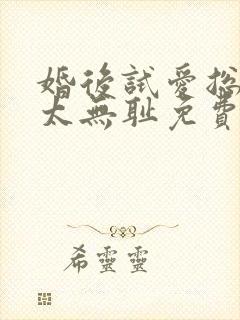 婚後試愛總
太無耻免費
希靈靈